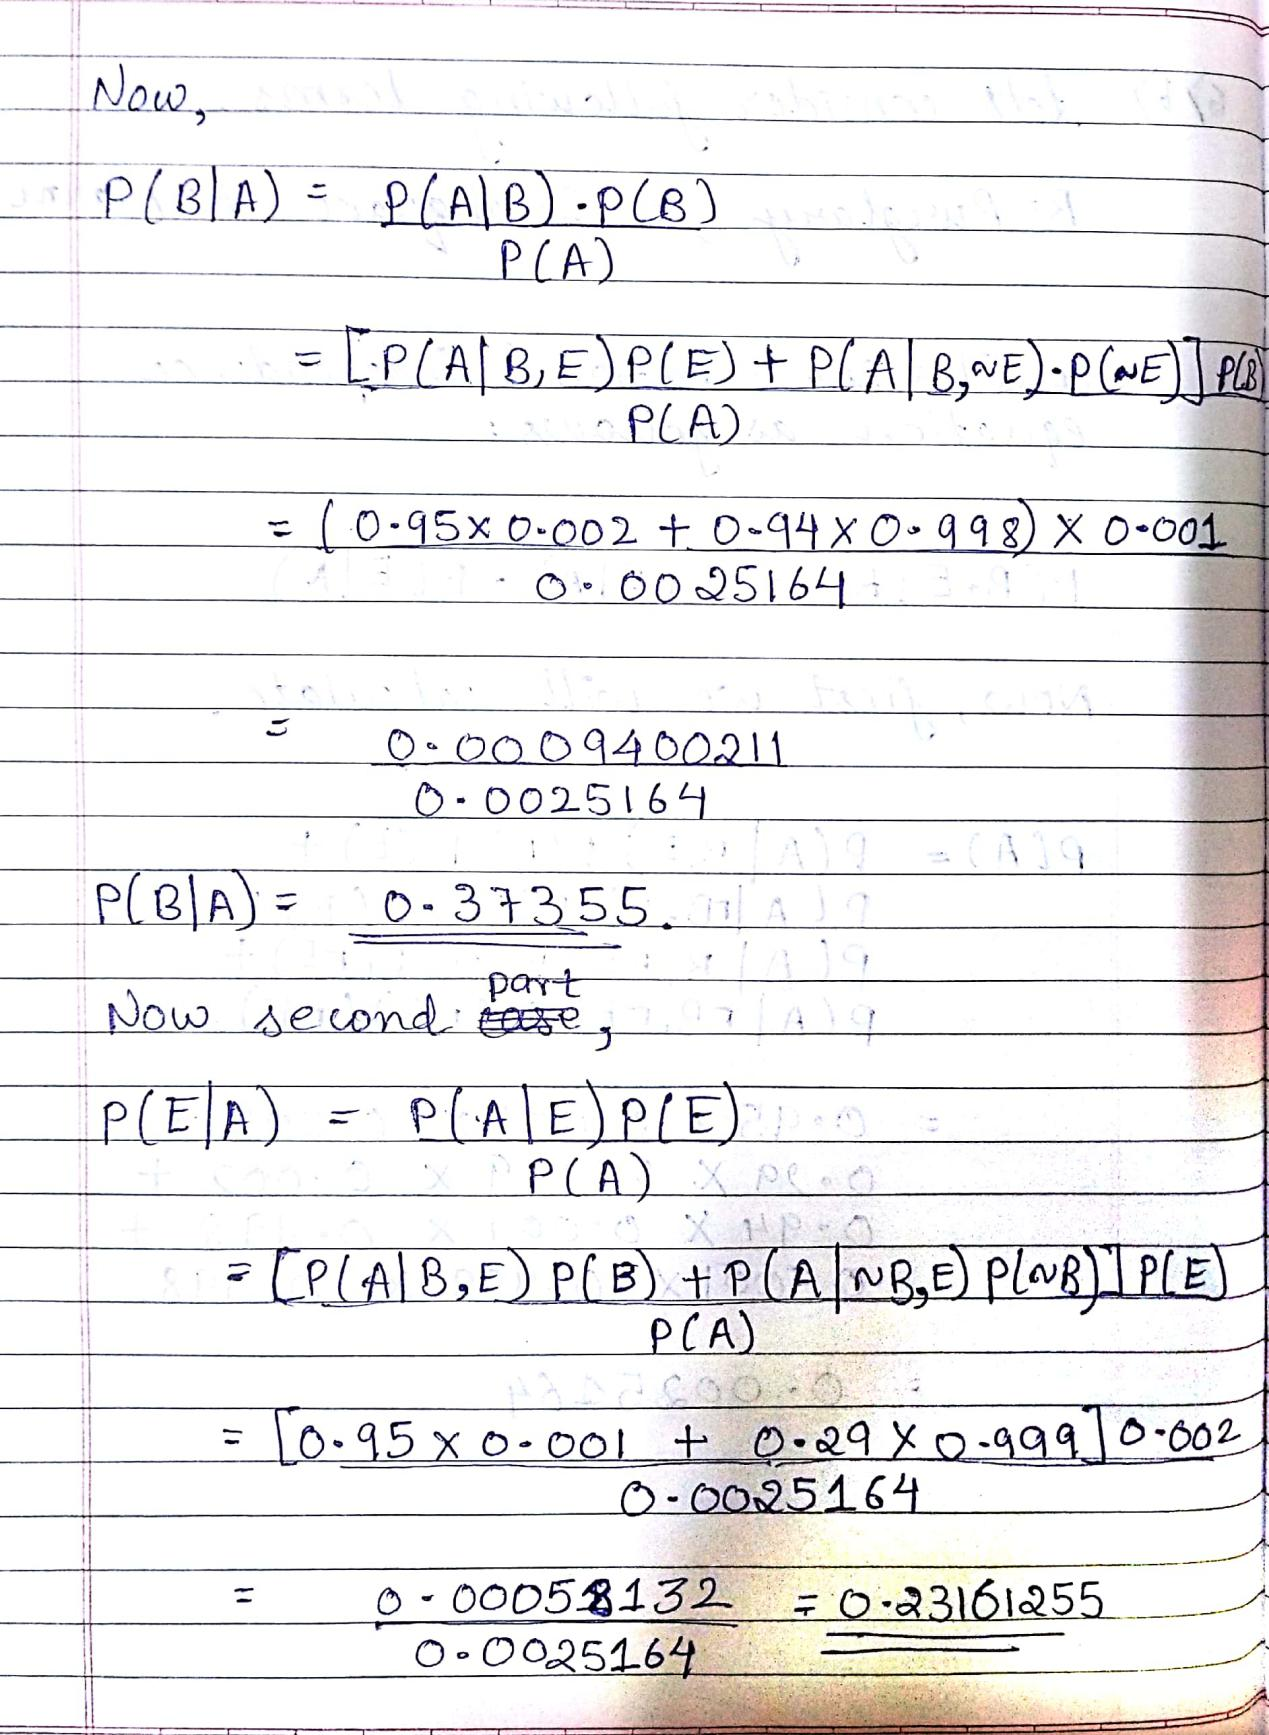 Now,
P(B|A) = P(A|B).P(B)
P(A)
= [P(A|B,E)P(E) + P(A|B,~E).P(~E)] P(B)
P(A)
= (0.95 x 0.002 + 0.94 x 0.998) x 0.001
0.0025164
= 0.0009400211
0.0025164
P(B|A) = 0.37355.
part
Now second case,
P(E|A) = P(A|E)P(E)
P(A)
= [P(A|B,E) P(B) + P(A|~B,E) P(~B)] P(E)
P(A)
= [0.95 x 0.001 + 0.29 x 0.999] 0.002
0.0025164
= 0.00058132 = 0.23161255
0.0025164